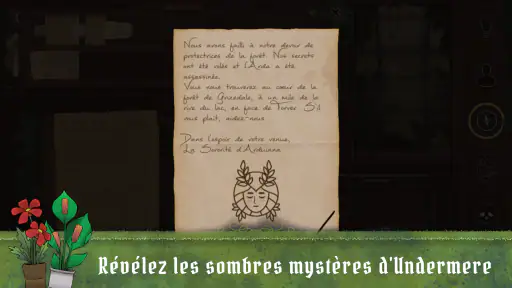 Nous avons failli à notre devoir de
protectrices de la forêt. Nos secrets
ont été volés et l'Arda a été
assassinée.
Vous nous trouverez au cœur de la
forêt de Grandale, à un mile de la
rive du lac, en face de Torver. S'il
vous plaît, aidez-nous.
Dans l'espoir de votre venue,
La Sororité d'Arduinna
Révélez les sombres mystères d'Undermere